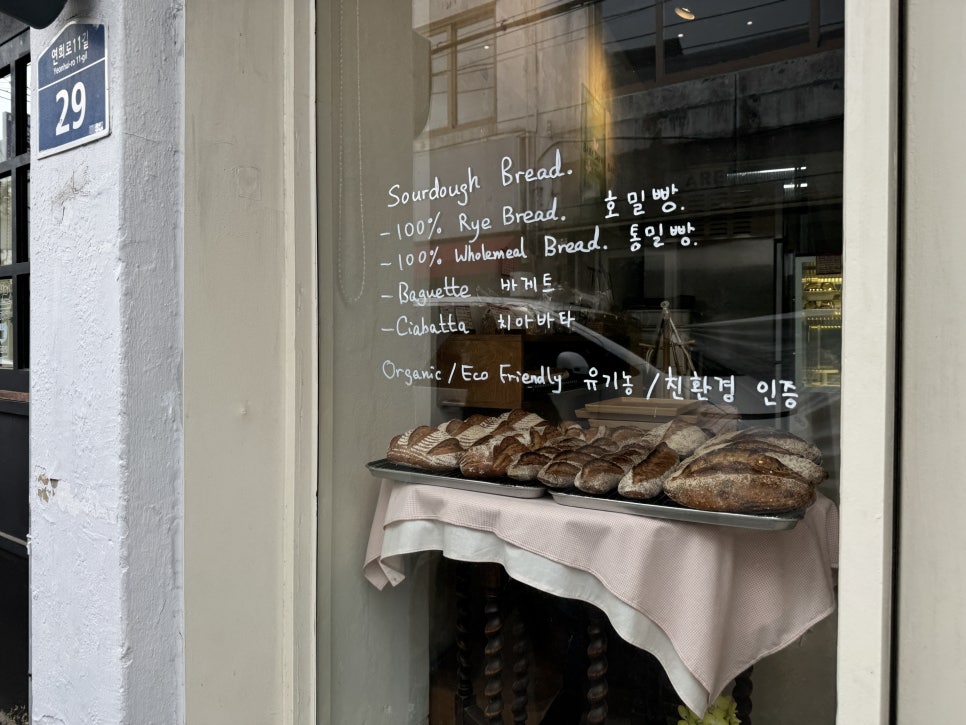 연희로11길
Yeonhui-ro 11-gil
29
Sourdough Bread.
-100% Rye Bread. 호밀빵.
-100% Wholemeal Bread. 통밀빵.
-Baguette 바게트
-Ciabatta 치아바타
Organic/Eco Friendly 유기농/친환경 인증